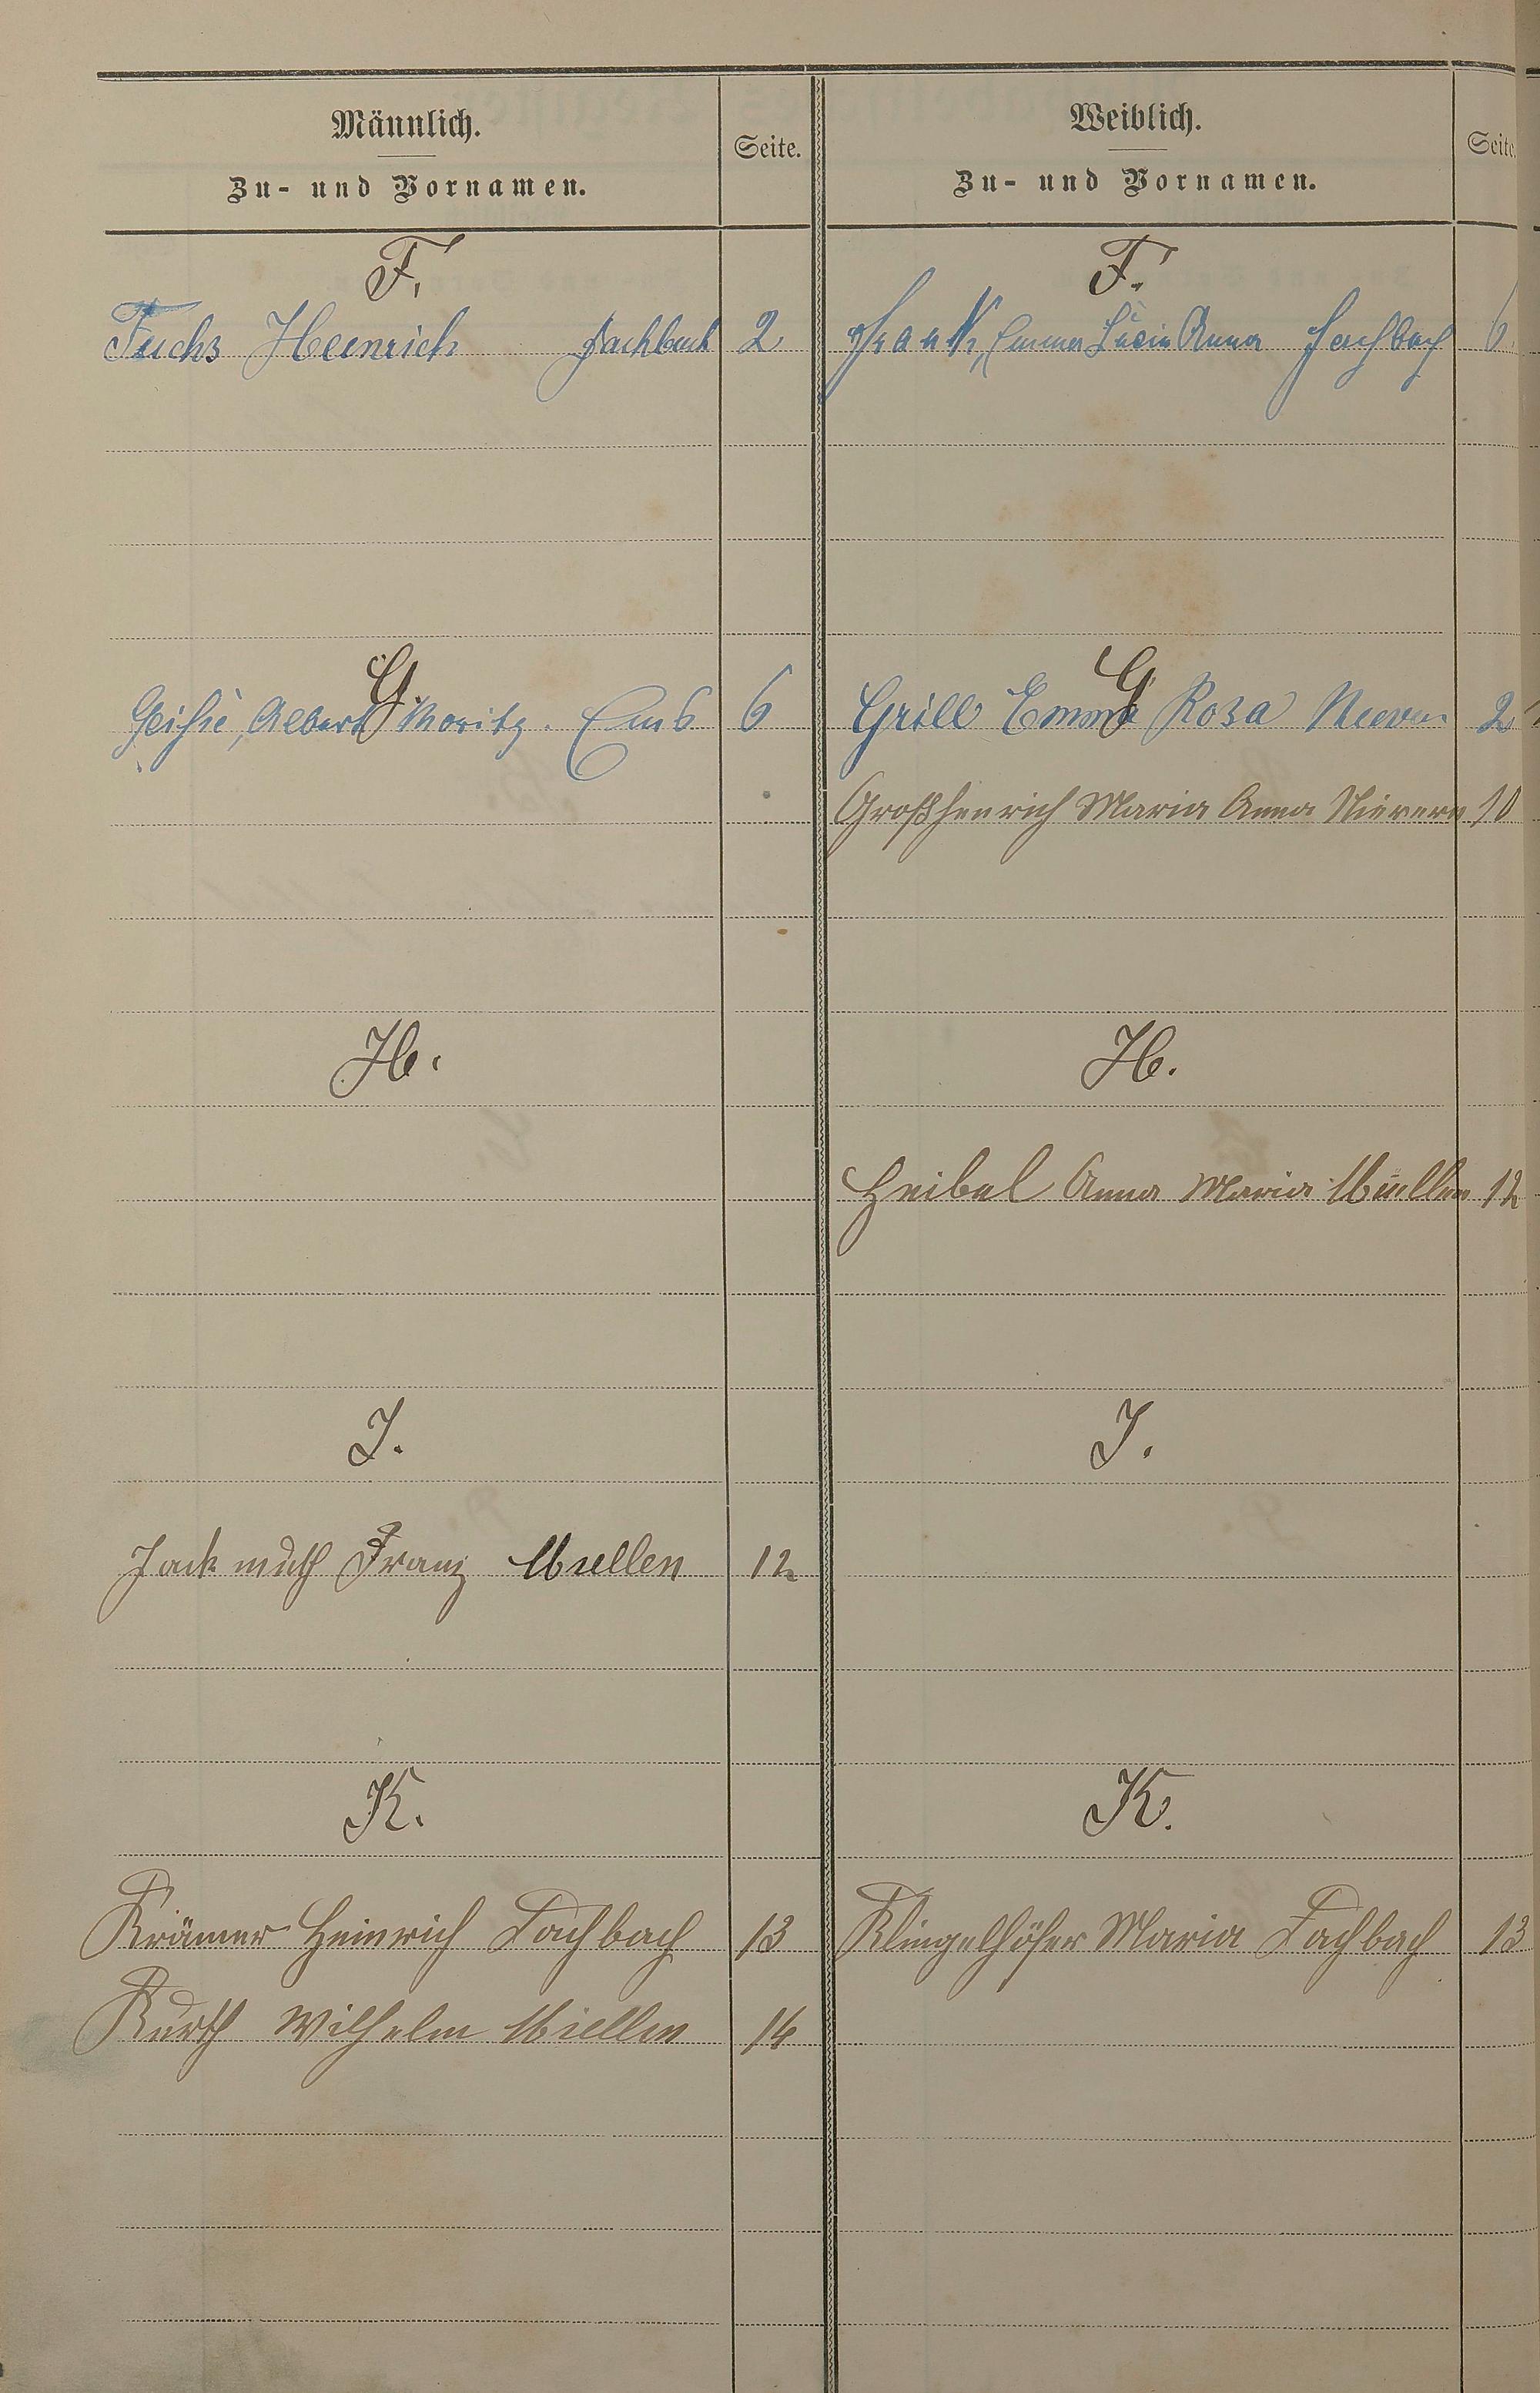 Männlich.
Zu- und Vornamen.
Seite.
Weiblich.
Zu- und Vornamen.
Seite.
F.
F.
Fuchs Heinrich Fachbach 2
Frank, Emma Lucie Anna Fachbach 6
G.
G.
Albert Moritz. Ems 6
Grill Emma Rosa Nievern 2
Großhenrich Maria Anna Nievern 10
H.
H.
Heibel Anna Maria Miellen 12
J.
J.
Jackmuth Franz Miellen 12
K.
K.
Krämer Heinrich Fachbach 13
Klingelhöfer Maria Fachbach 13
Kurth Wilhelm Miellen 14